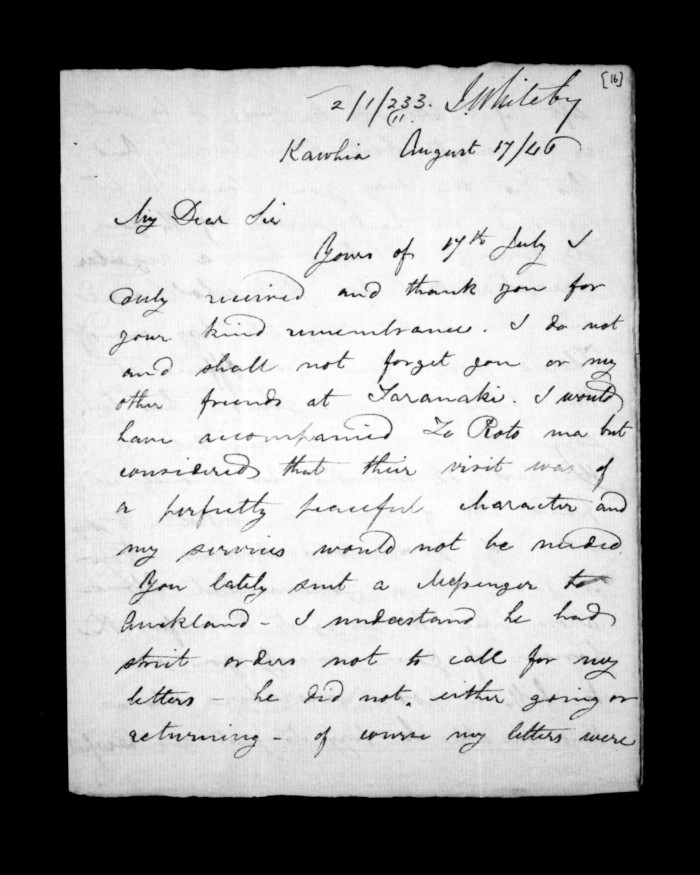 [16]
2/1/233. J. Whiteley
11.
Kawhia August 17/46
My Dear Sir
Yours of 17th July I
duly received and thank you for
your kind remembrance. I do not
and shall not forget you or my
other friends at Taranaki. I would
have accompanied Te Roto ma but
considered that their visit was of
a perfectly peaceful character and
my services would not be needed
You lately sent a Messenger to
Auckland - I understand he had
strict orders not to call for my
letters - he did not, either going or
returning - of course my letters were